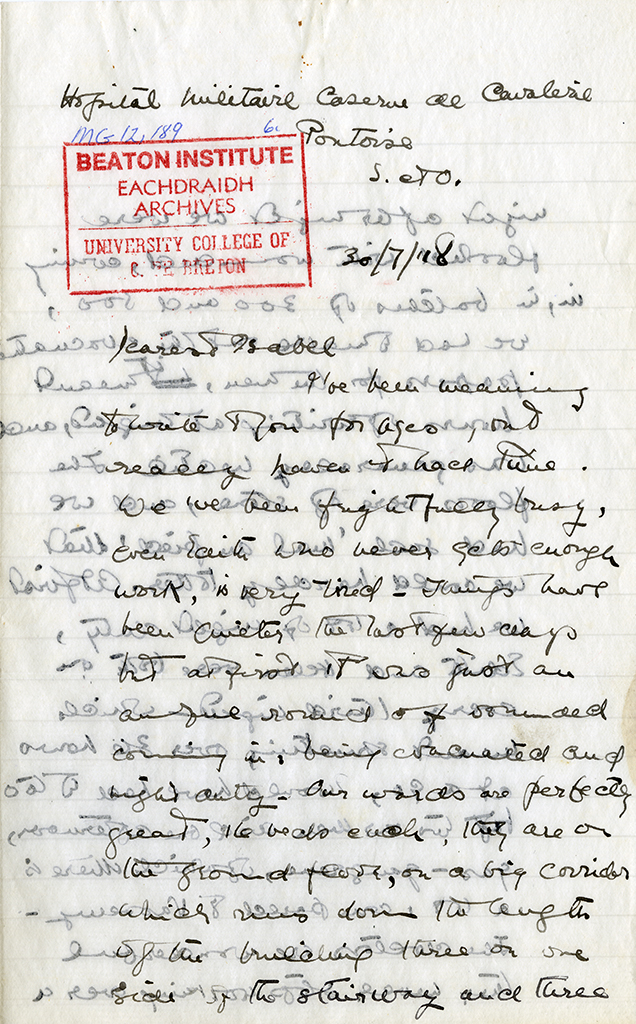 Hopital Militaire Caserne de Cavalerie
MG 12, 189 6.
Pontoise
S. et O.
BEATON INSTITUTE
EACHDRAIDH
ARCHIVES
UNIVERSITY COLLEGE OF
CAPE BRETON
30/7/18
Dearest Isabel
I've been meaning
to write you for ages, but
really haven't had time.
We've been frightfully busy,
even Faith who never gets enough
work, is very tired - Things have
been quieter the last few days
but at first it was just an
awful round of wounded
coming in, being evacuated and
night duty - Our wards are perfectly
great, 16 beds each, they are on
the ground floor, on a big corridor
which runs down the length
of the building three on one
side of the stairway and three